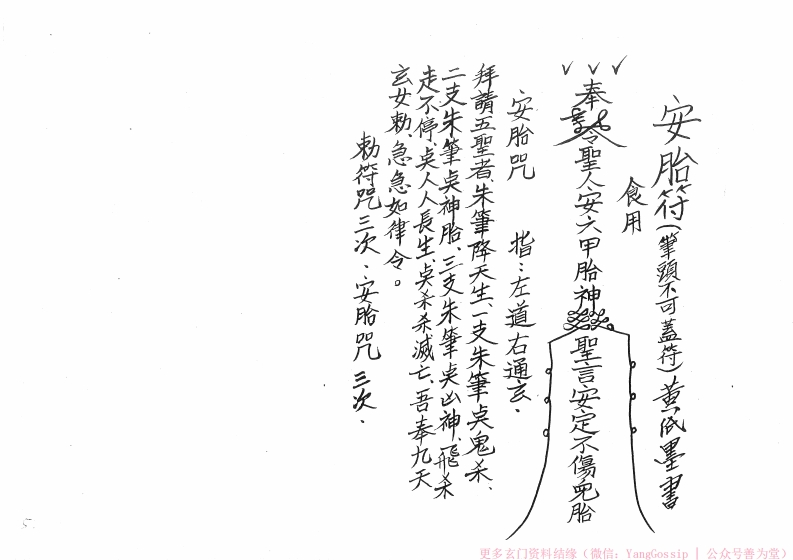 安胎符(筆頭不可蓋符)黃帋墨書
食用
奉
令聖人安六甲胎神
聖言安定不傷兒胎
安胎咒 指：左道右通玄．
拜請五聖者、朱筆降天生、一支朱筆点鬼杀、
二支朱筆点神胎、三支朱筆点凶神、飛杀
走不停、点人人長生、点杀杀滅亡、吾奉九天
玄女勅急急如律令。
勅符咒三次．安胎咒三次．
5
更多玄门资料结缘（微信：YangGossip | 公众号善为堂）